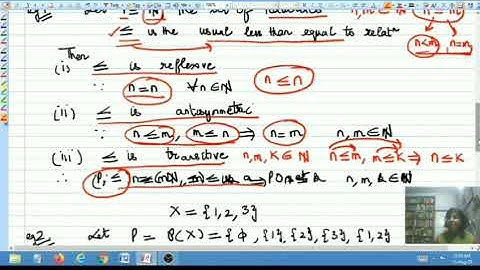 eg1. Let P = ℕ the set of naturals n, m ∈ ℕ
≤ is the usual less than equal to relatn n<m, n=m
Then
(i) ≤ is reflexive
∵ n=n ∀n∈ℕ n≤n
(ii) ≤ is antisymmetric
∵ n≤m, m≤n ⇒ n=m n,m∈ℕ
(iii) ≤ is transitive n,m,k∈ℕ n≤m, m≤k ⇒ n≤k
∴ (P, ≤ is a POset n, m, k∈ℕ
X = {1, 2, 3}
eg2. Let P = P(X) = {ϕ, {1}, {2}, {3}, {1,2}